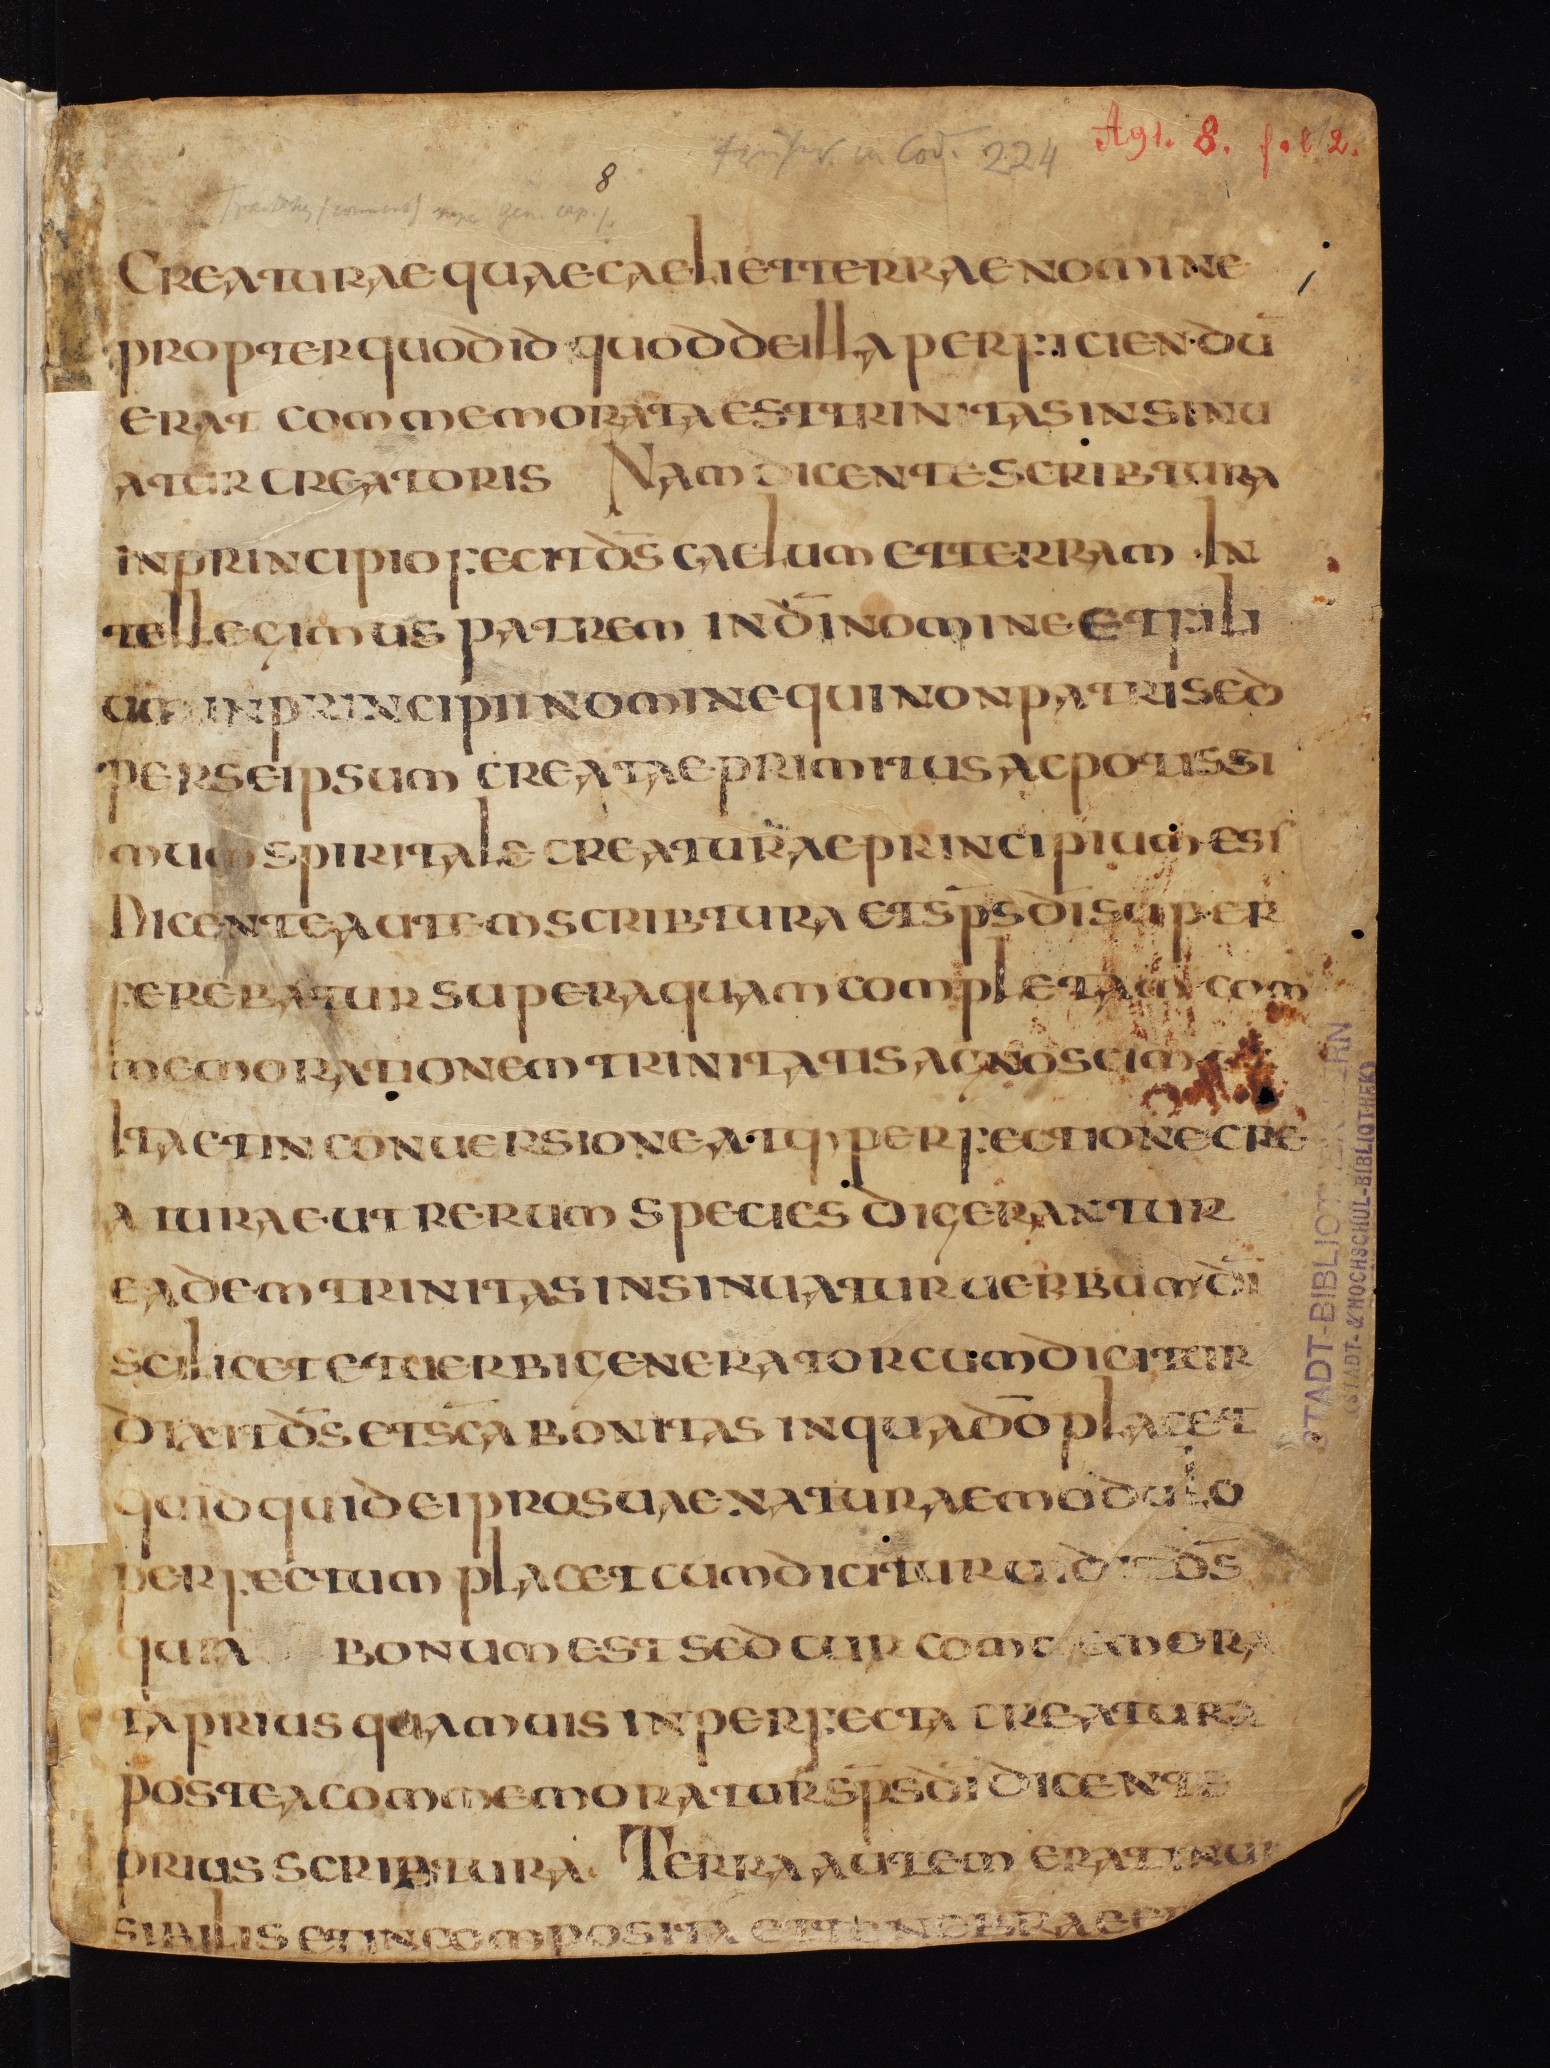 Agl. 8. fol 2.
in Cod. 224
8
CREATURAE QUAE CAELI ET TERRAE NOMINE
PROPTER QUOD ID QUOD DE ILLA PERFICIENDŪ
ERAT COMMEMORATA EST TRINITAS INSINU
ATUR CREATORIS NAM DICENTE SCRIBTURA
IN PRINCIPIO FECIT DS̄ CAELUM ET TERRAM IN
TELLEGIMUS PATREM IN DĪ NOMINE ET FILI
UM IN PRINCIPII NOMINE QUI NON PATRI SED
PER SE IPSUM CREATAE PRIMITUS AC POTISSI
MUM SPIRITALE CREATURAE PRINCIPIUM EST
DICENTE AUTEM SCRIBTURA ET SP̄S DĪ SUPER
FEREBATUR SUPER AQUAM COMPLETAM COM
MEMORATIONEM TRINITATIS AGNOSCIM
ITA ET IN CONUERSIONE ATQ PERFECTIONE CRE
ATURAE UT RERUM SPECIES DIGERANTUR
EADEM TRINITAS INSINUATUR UERBUM DĪ
SCILICET ET UERBI GENERATOR CUM DICITUR
DIXIT DS̄ ET SC̄A BONITAS IN QUA DŌ PLACET
QUIDQUID EI PRO SUAE NATURAE MODULO
PERFECTUM PLACET CUM DICITUR UIDIT DS̄
QUIA BONUM EST SED CUR COMMEMORA
TA PRIUS QUAMUIS INPERFECTA CREATURA
POSTEA COMMEMORATUR SP̄S DĪ DICENTE
PRIUS SCRIPTURA TERRA AUTEM ERAT INUI
SIBILIS ET INCOMPOSITA ET TENEBRAE ER
STADT-BIBLIOTHEK BERN
(STADT- & HOCHSCHUL-BIBLIOTHEK)